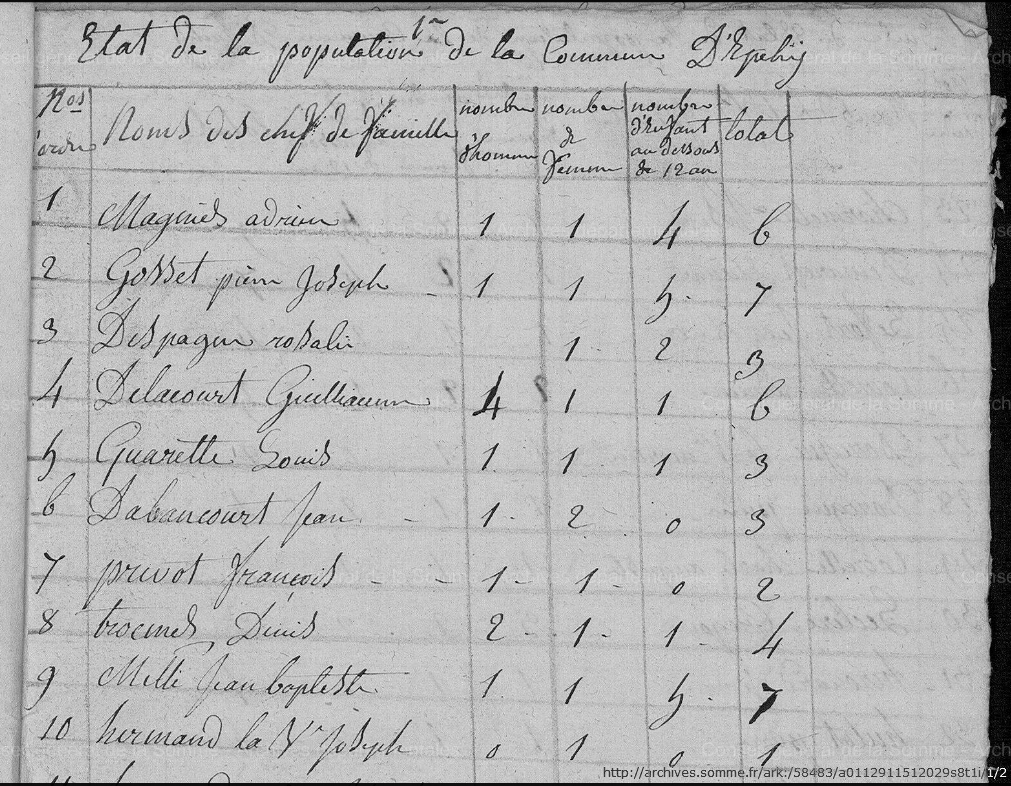 Etat de la population de la Commun D'Epehy
Nos
ordre
Noms des chef de famille
nombre
d'homme
nombre
de
femme
nombre
d'enfant
au dessous
de 12 an
total
1 Magniés adrien 1 1 4 6
2 Gosset pierre Joseph 1 1 5 7
3 Despagne rosalie 1 2 3
4 Delacourt Guilliaume 4 1 1 6
5 Quarette Louis 1 1 1 3
6 Dabancourt Jean 1 2 0 3
7 prevot françois 1 1 0 2
8 trocmes Denis 2 1 1 4
9 Mille Jean baptiste 1 1 5 7
10 hermand la Ve Joseph 0 1 0 1
http://archives.somme.fr/ark:/58483/a0112911512029s8t1i/1/2